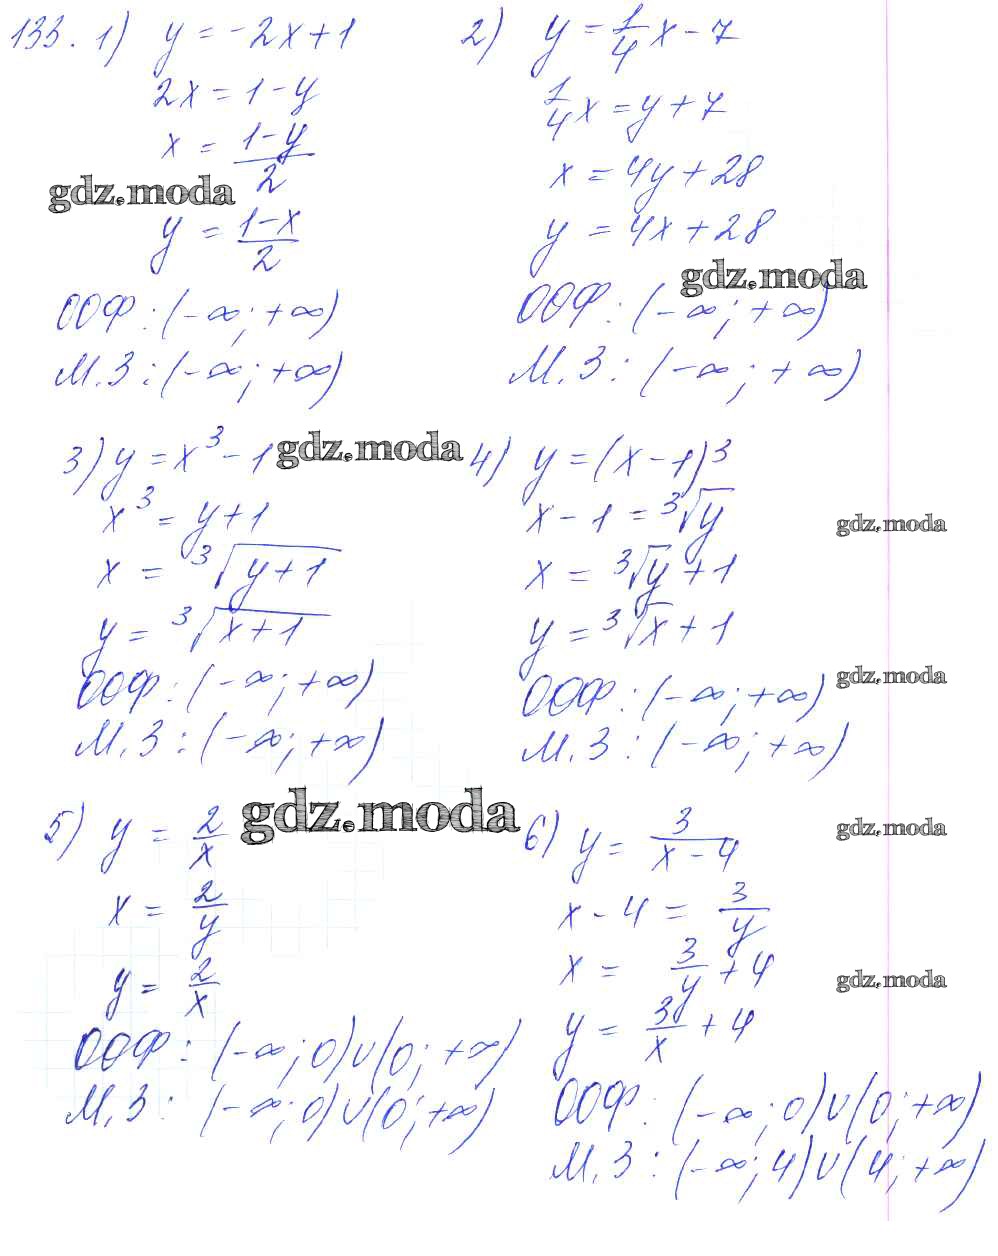 133. 1) y = -2x + 1
2x = 1 - y
x = (1-y)/2
gdz.moda
y = (1-x)/2
ООФ: (-∞; +∞)
М.З: (-∞; +∞)
2) y = 1/4 x - 7
1/4 x = y + 7
x = 4y + 28
y = 4x + 28
gdz.moda
ООФ: (-∞; +∞)
М.З: (-∞; +∞)
3) y = x³ - 1
gdz.moda
x³ = y + 1
x = ³√(y + 1)
y = ³√(x + 1)
ООФ: (-∞; +∞)
М.З: (-∞; +∞)
4) y = (x - 1)³
x - 1 = ³√y
gdz.moda
x = ³√y + 1
y = ³√x + 1
ООФ: (-∞; +∞)
gdz.moda
М.З: (-∞; +∞)
5) y = 2/x
gdz.moda
x = 2/y
y = 2/x
ООФ: (-∞; 0)∪(0; +∞)
М.З: (-∞; 0)∪(0; +∞)
6) y = 3/(x - 4)
gdz.moda
x - 4 = 3/y
x = 3/y + 4
gdz.moda
y = 3/x + 4
ООФ: (-∞; 0)∪(0; +∞)
М.З: (-∞; 4)∪(4; +∞)